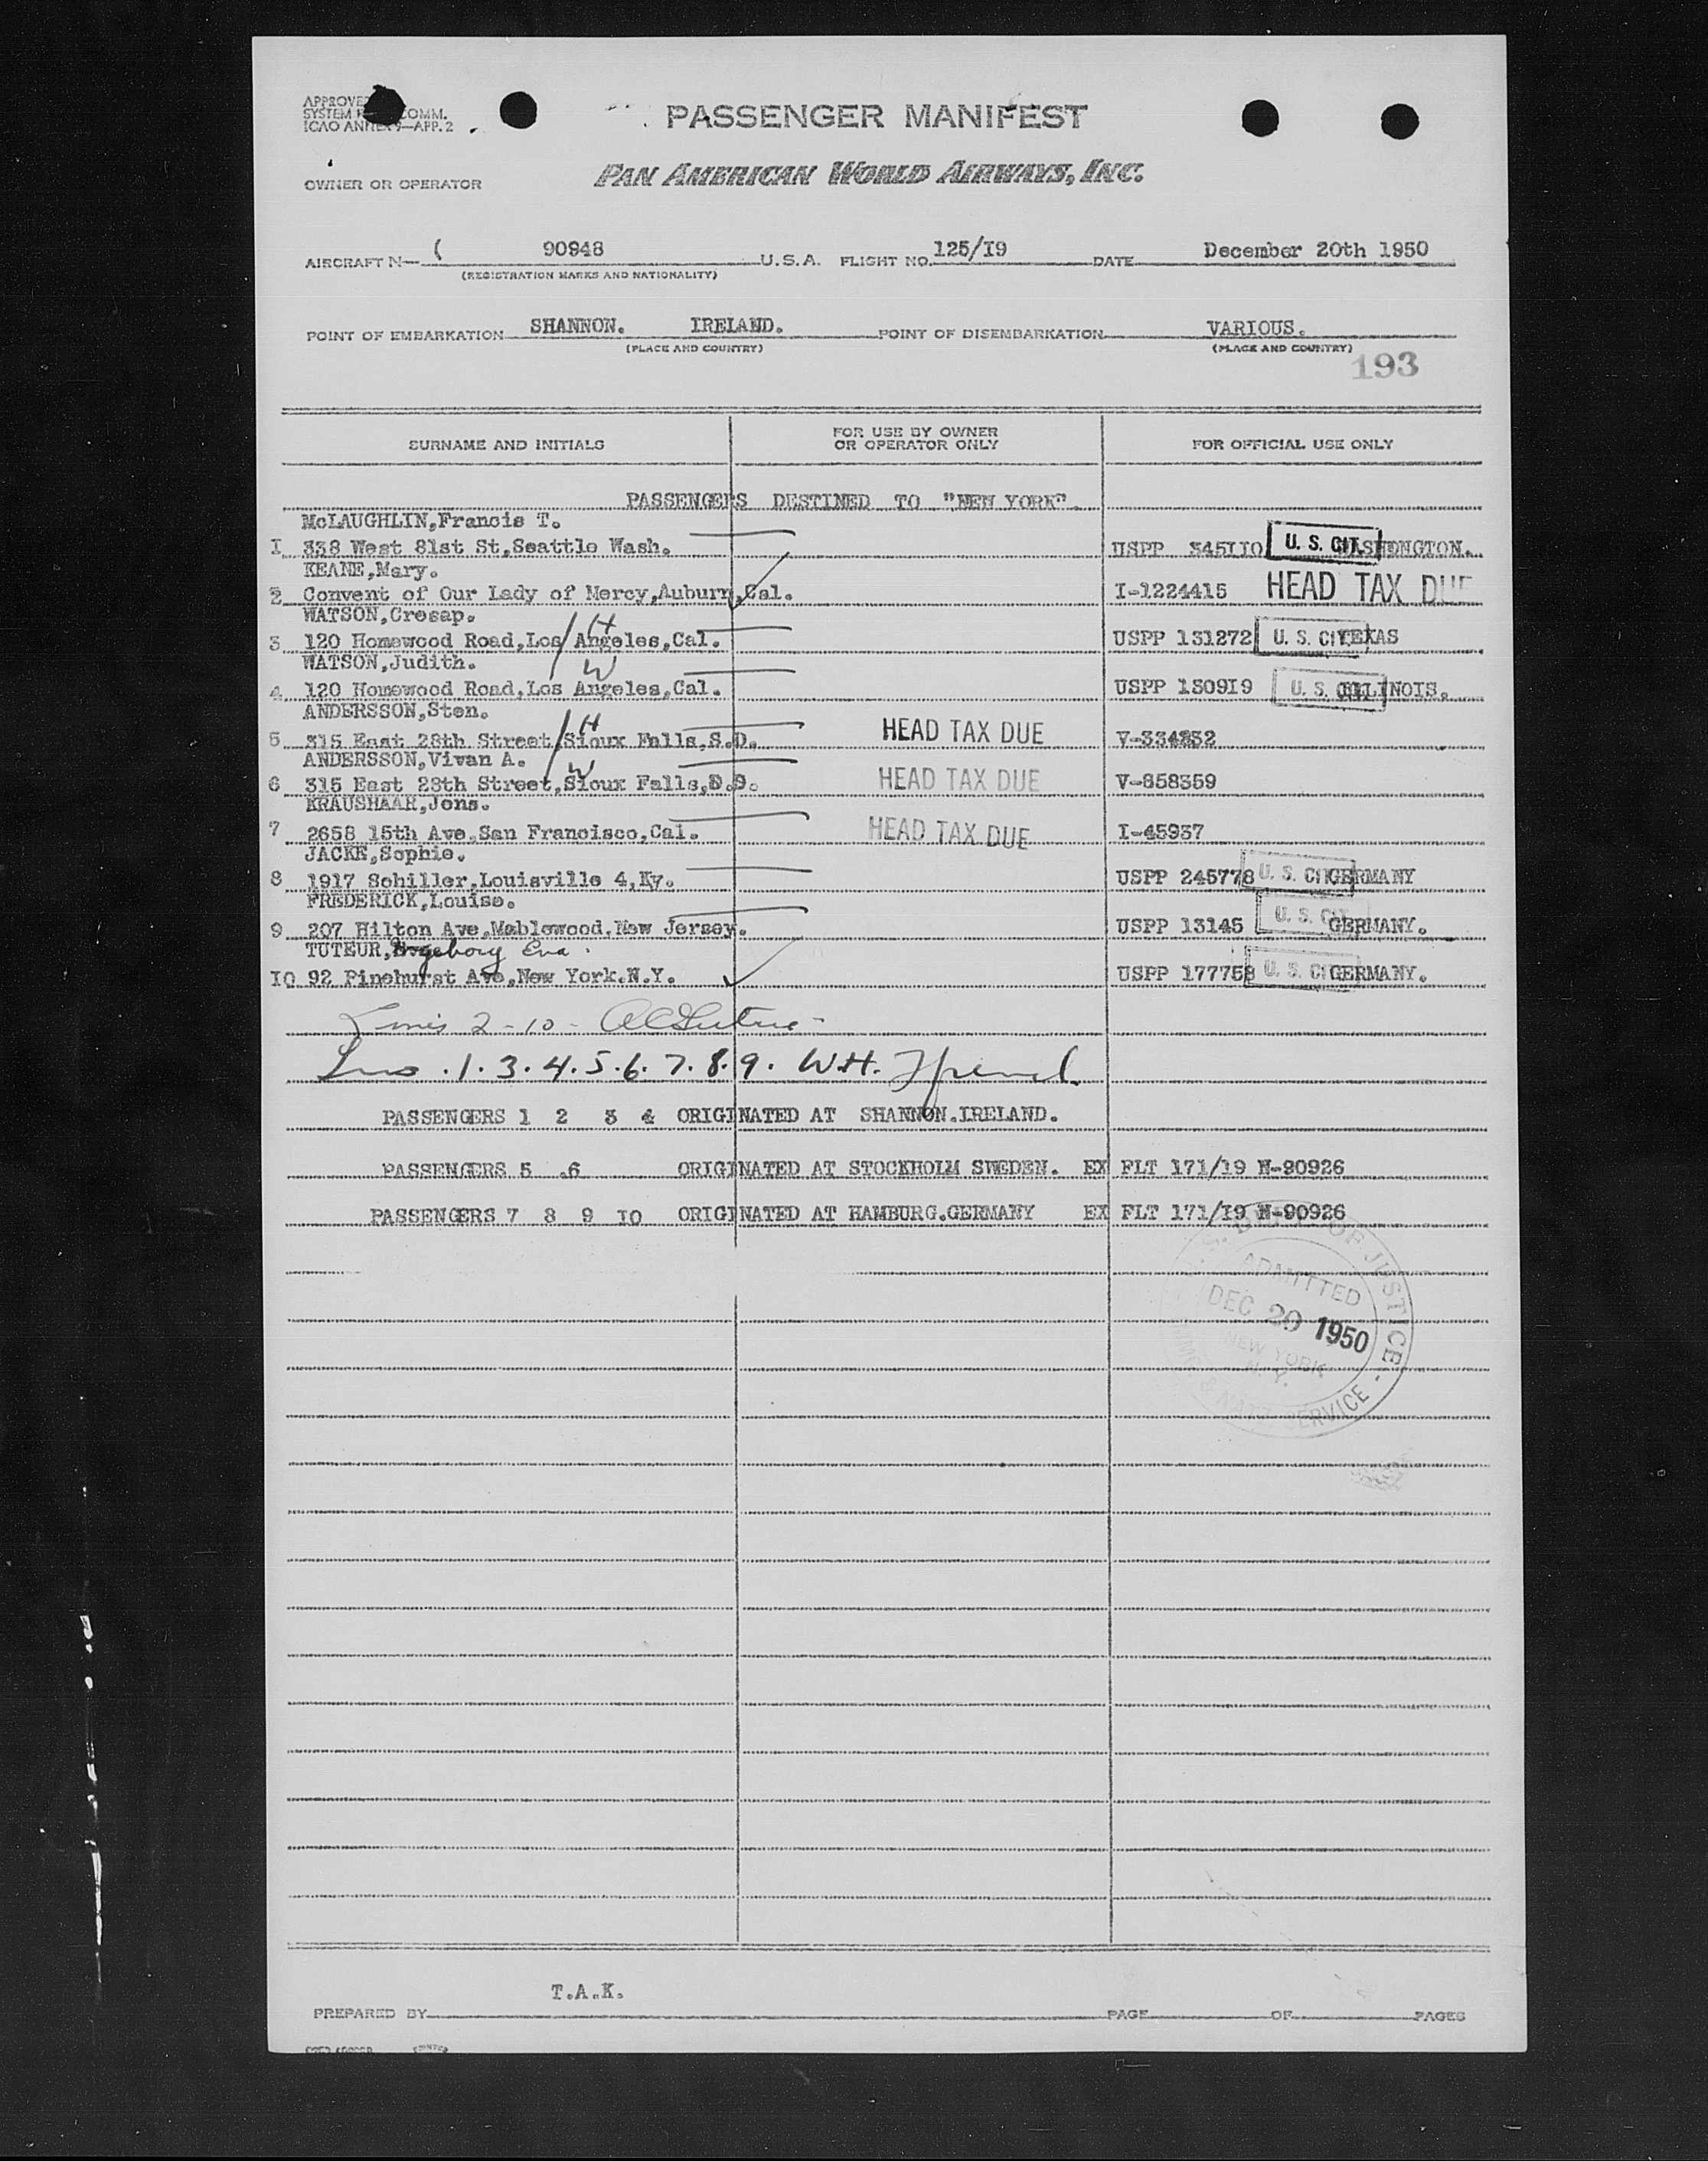 APPROVED
SYSTEM COMM.
ICAO ANNEX 9—APP. 2
PASSENGER MANIFEST
OWNER OR OPERATOR PAN AMERICAN WORLD AIRWAYS, INC.
AIRCRAFT N— ( 90948 U.S.A. FLIGHT NO. 125/I9 DATE December 20th 1950
(REGISTRATION MARKS AND NATIONALITY)
POINT OF EMBARKATION SHANNON. IRELAND. POINT OF DISEMBARKATION VARIOUS.
(PLACE AND COUNTRY) (PLACE AND COUNTRY)
193
SURNAME AND INITIALS FOR USE BY OWNER OR OPERATOR ONLY FOR OFFICIAL USE ONLY
PASSENGERS DESTINED TO "NEW YORK".
McLAUGHLIN,Francis T.
I 338 West 81st St,Seattle Wash. USPP 345110 U. S. CIT. WASHINGTON.
KEANE,Mary.
2 Convent of Our Lady of Mercy,Auburn,Cal. I-1224415 HEAD TAX DUE
WATSON,Cresap.
3 120 Homewood Road,Los Angeles,Cal. H USPP 131272 U. S. CIT TEXAS
WATSON,Judith.
4 120 Homewood Road,Los Angeles,Cal. W USPP 130919 U. S. CIT ILLINOIS.
ANDERSSON,Sten.
5 315 East 28th Street,Sioux Falls,S.D. H HEAD TAX DUE V-334252
ANDERSSON,Vivan A.
6 315 East 28th Street,Sioux Falls,S.D. W HEAD TAX DUE V-858359
KRAUSHAAR,Jens.
7 2658 15th Ave,San Francisco,Cal. HEAD TAX DUE I-45937
JACKE,Sophie.
8 1917 Schiller,Louisville 4,Ky. USPP 245778 U. S. CIT GERMANY
FREDERICK,Louise.
9 207 Hilton Ave,Mablewood,New Jersey. USPP 13145 U. S. CIT GERMANY.
TUTEUR,Ingeborg Eva.
IO 92 Pinehurst Ave,New York.N.Y. USPP 177758 U. S. CIT GERMANY.
Lines 2 - 10 -
Lns .1.3.4.5.6.7.8.9. W.H.
PASSENGERS 1 2 3 4 ORIGINATED AT SHANNON.IRELAND.
PASSENGERS 5 .6 ORIGINATED AT STOCKHOLM SWEDEN. EX FLT 171/19 N-90926
PASSENGERS 7 8 9 IO ORIGINATED AT HAMBURG.GERMANY EX FLT 171/I9 N-90926
U. S. DEPT. OF JUSTICE - IMMIG. & NATZ. SERVICE
ADMITTED
DEC 20 1950
NEW YORK
N. Y.
T.A.K.
PREPARED BY PAGE OF PAGES